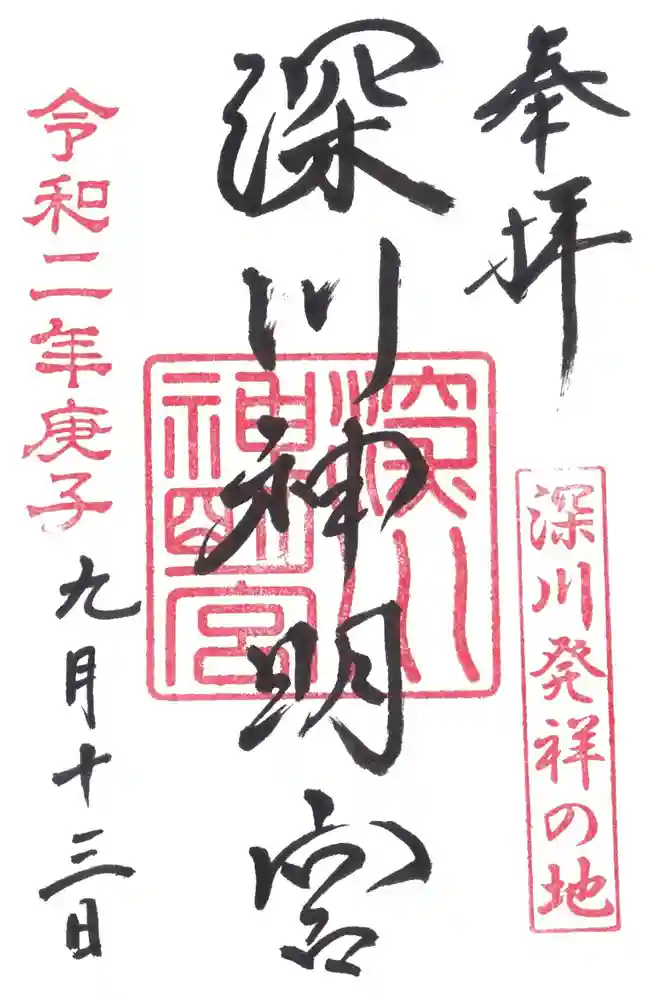 奉拝
深川発祥の地
深川神明宮
深川
神明宮
令和二年庚子九月十三日